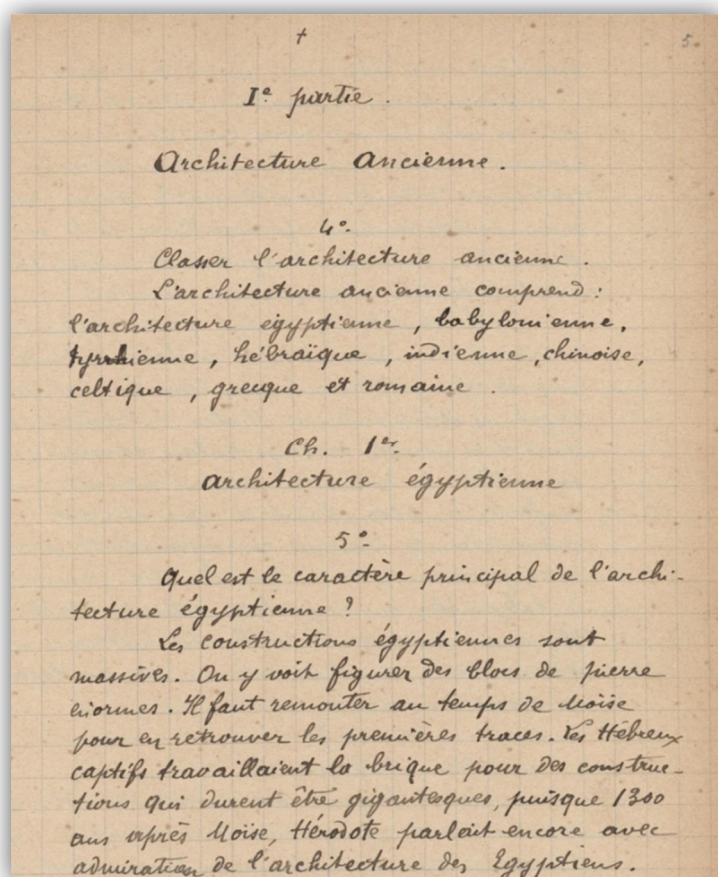 †
5.
Ie partie.
Architecture Ancienne.
4°.
Classer l'architecture ancienne.
L'architecture ancienne comprend :
l'architecture égyptienne, babylonienne,
tyrrhienne, hébraïque, indienne, chinoise,
celtique, grecque et romaine.
Ch. 1er.
architecture égyptienne
5°.
Quel est le caractère principal de l'archi-
tecture égyptienne ?
Les constructions égyptiennes sont
massives. On y voit figurer des blocs de pierre
énormes. Il faut remonter au temps de Moïse
pour en retrouver les premières traces. Les Hébreux
captifs travaillaient la brique pour des construc-
tions qui durent être gigantesques, puisque 1300
ans après Moïse, Hérodote parlait encore avec
admiration de l'architecture des Egyptiens.